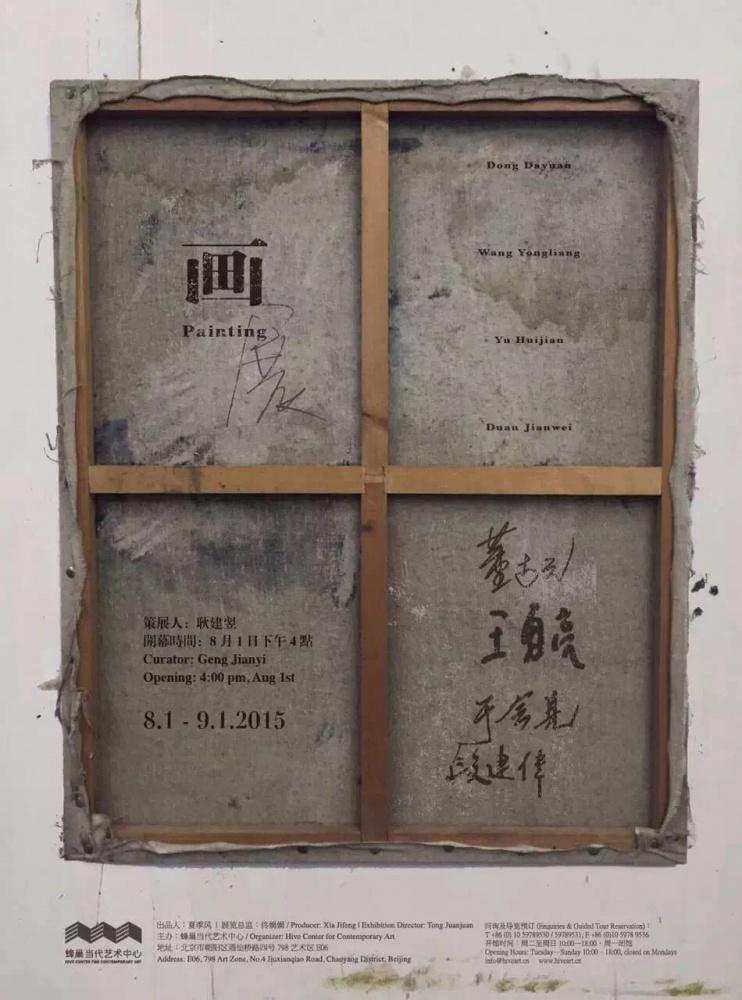 画
Painting
展
Dong Dayuan
Wang Yongliang
Yu Huijian
Duan Jianwei
策展人：耿建翌
開幕時間：8 月 1 日下午 4 點
Curator: Geng Jianyi
Opening: 4:00 pm, Aug 1st
8.1 - 9.1.2015
王勇亮
段建偉
蜂巢当代艺术中心
HIVE CENTER FOR CONTEMPORARY ART
出品人：夏季风 | 展览总监：佟娟娟 / Producer: Xia Jifeng | Exhibition Director: Tong Juanjuan
主办：蜂巢当代艺术中心 / Organizer: Hive Center for Contemporary Art
地址：北京市朝阳区酒仙桥路四号 798 艺术区 E06
Address: E06, 798 Art Zone, No.4 Jiuxianqiao Road, Chaoyang District, Beijing
问询及导览预订 (Enquiries & Guided Tour Reservation) :
T +86 (0) 10 59789530 / 59789531; F +86 (0)10 5978 9536
开馆时间：周二至周日 10:00—18:00，周一闭馆
Opening Hours: Tuesday—Sunday 10:00 - 18:00, closed on Mondays
info@hiveart.cn www.hiveart.cn